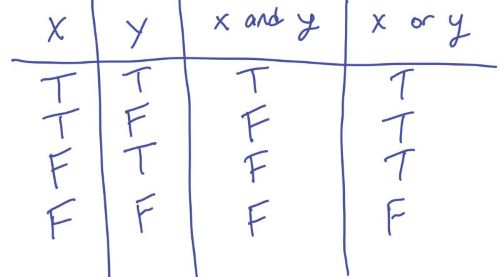 X Y x and y x or y
T T T T
T F F T
F T F T
F F F F